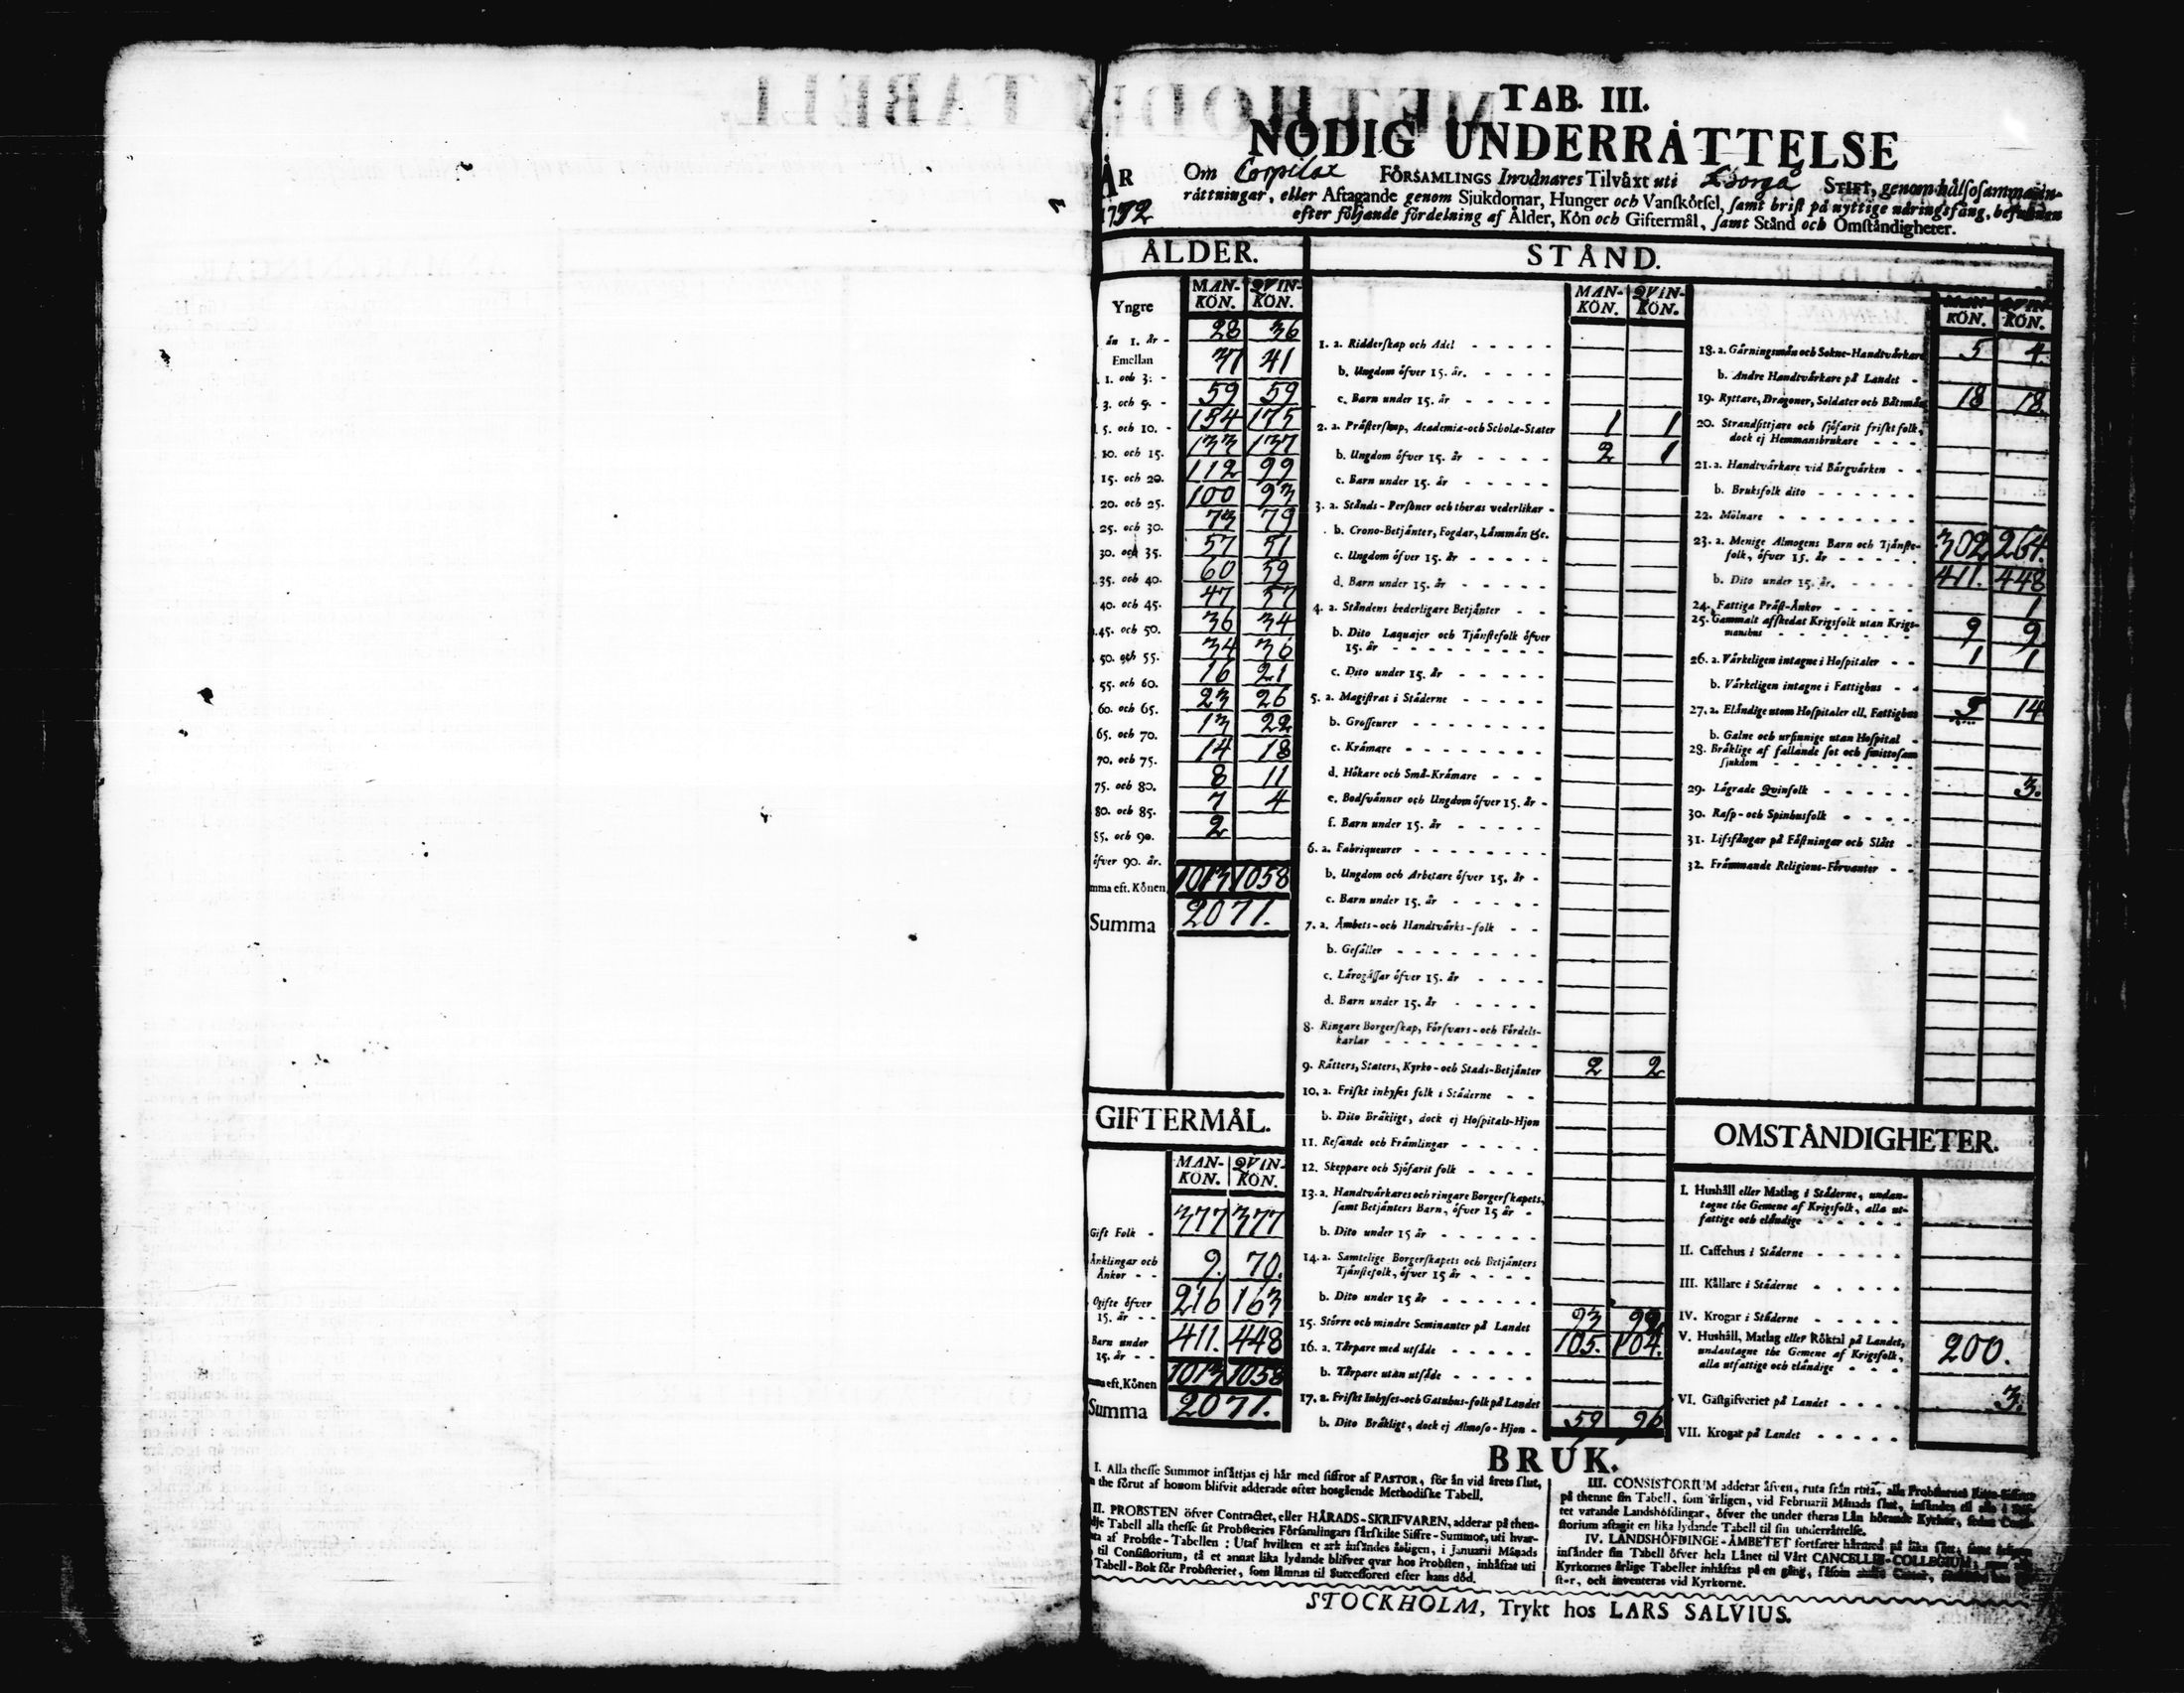 TAB. III.
NÖDIG UNDERRÄTTELSE
ÅR 1752
Om Corpilax FÖRSAMLINGS Invånares Tilväxt uti Borgå STIFT, genom hälsosamma in-
rättningar, eller Aftagande genom Sjukdomar, Hunger och Vanskötsel, samt brist på nyttige näringsfång, befunnen
efter följande fördelning af Ålder, Kön och Giftermål, samt Stånd och Omständigheter.
ÅLDER.
Yngre MAN-KÖN. QVIN-KÖN.
än 1. år - 28 36
Emellan
1. och 3. - 37 41
3. och 5. - 59 59
5. och 10. - 154 175
10. och 15. 133 137
15. och 20. 112 99
20. och 25. 100 93
25. och 30. 73 79
30. och 35. 57 51
35. och 40. 60 59
40. och 45. 47 57
45. och 50. 36 34
50. och 55. 34 36
55. och 60. 16 21
60. och 65. 23 26
65. och 70. 13 22
70. och 75. 14 18
75. och 80. 8 11
80. och 85. 7 4
85. och 90. 2
öfver 90. år.
mma eft. Könen 1013 1058
Summa 2071.
GIFTERMÅL.
MAN-KÖN. QVIN-KÖN.
Gift Folk - 377 377
Änklingar och
Änkor - - 9. 70.
Ogifte öfver
15. år - - 216 163
Barn under
15. år - - 411. 448
ma eft. Könen 1013 1058
Summa 2071.
STÅND.
MAN-KÖN. QVIN-KÖN.
1. a. Ridderskap och Adel
b. Ungdom öfver 15. år.
c. Barn under 15. år
2. a. Prästerskap, Academia- och Schola-Stater 1 1
b. Ungdom öfver 15. år 2 1
c. Barn under 15. år
3. a. Stånds-Persöner och theras vederlikar
b. Crono-Betjänter, Fogdar, Länsmän &c.
c. Ungdom öfver 15. år
d. Barn under 15. år
4. a. Ståndens hederligare Betjänter
b. Dito Laquajer och Tjänstefolk öfver
15. år
c. Dito under 15. år
5. a. Magistrat i Städerne
b. Grosseurer
c. Krämare
d. Hökare och Små-Krämare
e. Bodsvänner och Ungdom öfver 15. år
f. Barn under 15. år
6. a. Fabriqueurer
b. Ungdom och Arbetare öfver 15. år
c. Barn under 15. år
7. a. Ämbets- och Handtvärks-folk
b. Gesäller
c. Lärogässar öfver 15. år
d. Barn under 15. år
8. Ringare Borgerskap, Försvars- och Fördels-
karlar
9. Rätters, Staters, Kyrko- och Stads-Betjänter 2 2
10. a. Friskt inhyses folk i Städerne
b. Dito Bräkligt, dock ej Hospitals-Hjon
11. Resande och Främlingar
12. Skeppare och Sjöfarit folk
13. a. Handtvärkares och ringare Borgerskapets,
samt Betjänters Barn, öfver 15 år
b. Dito under 15 år
14. a. Samtelige Borgerskapets och Betjänters
Tjänstefolk, öfver 15 år
b. Dito under 15 år
15. Större och mindre Seminanter på Landet 93
16. a. Torpare med utsäde 105. 104.
b. Torpare utan utsäde
17. a. Friskt Inhyses- och Gatuhus-folk på Landet
b. Dito Bräkligt, dock ej Almoso-Hjon 59 96
MAN KÖN. QVIN KÖN.
18. a. Gärningsmän och Sokne-Handtvärkare 5 4.
b. Andre Handtvärkare på Landet
19. Ryttare, Dragoner, Soldater och Båtsmän 18 18.
20. Strandsittjare och sjöfarit friskt folk,
dock ej Hemmansbrukare
21. a. Handtvärkare vid Bärgvärken
b. Bruksfolk dito
22. Mölnare
23. a. Menige Almogens Barn och Tjänste-
folk, öfver 15. år 302 264.
b. Dito under 15. år. 411. 448
24. Fattiga Präst-Änkor 1
25. Gammalt afskedat Krigsfolk utan Krigs-
manshus 9 9
26. a. Värkeligen intagne i Hospitaler 1 1
b. Värkeligen intagne i Fattighus
27. a. Eländige utom Hospitaler ell. Fattighus 5 14
b. Galne och ursinnige utan Hospital
28. Bräklige af fallande sot och smittosam
sjukdom
29. Lägrade Qvinfolk 3.
30. Rasp- och Spinhusfolk
31. Lifsfångar på Fästningar och Slått
32. Främmande Religions-Förvanter
OMSTÄNDIGHETER.
I. Hushåll eller Matlag i Städerne, undan-
tagne the Gemene af Krigsfolk, alla ut-
fattige och eländige
II. Caffehus i Städerne
III. Källare i Städerne
IV. Krogar i Städerne
V. Hushåll, Matlag eller Röktal på Landet,
undantagne the Gemene af Krigsfolk,
alla utfattige och eländige 200.
VI. Gästgifveriet på Landet 3.
VII. Krogar på Landet
BRUK.
I. Alla thesse Summor insättjas ej här med siffror af PASTOR, för än vid årets slut,
the förut af honom blifvit adderade efter hosgående Methodiske Tabell.
II. PROBSTEN öfver Contractet, eller HÄRADS-SKRIFVAREN, adderar på then-
Tabell alla thesse sit Probsteries Församlingars särskilte Siffre-Summor, uti hvar-
af Probste-Tabellen: Utaf hvilken et ark insändes årligen, i Januarii Månads
til Consistorium, tå et annat lika lydande blifver qvar hos Probsten, inhäftat uti
Tabell-Bok för Probsteriet, som lämnas til Successoren efter hans död.
III. CONSISTORIUM adderar äfven, ruta från ruta, alla
på thenne sin Tabell, som årligen, vid Februarii Månads slut, insändes til
tet varande Landshöfdingar, öfver the under theras Län hörande Kyrkor, sedan
storium aftagit en lika lydande Tabell til sin underrättelse.
IV. LANDSHÖFDINGE-ÄMBETET fortfarer härmed på lika sätt,
insänder sin Tabell öfver hela Länet til Vårt CANCELLIE-COLLEGIUM,
Kyrkornes årlige Tabeller inhäftas på en gång, såsom
och inventeras vid Kyrkorne.
STOCKHOLM, Trykt hos LARS SALVIUS.